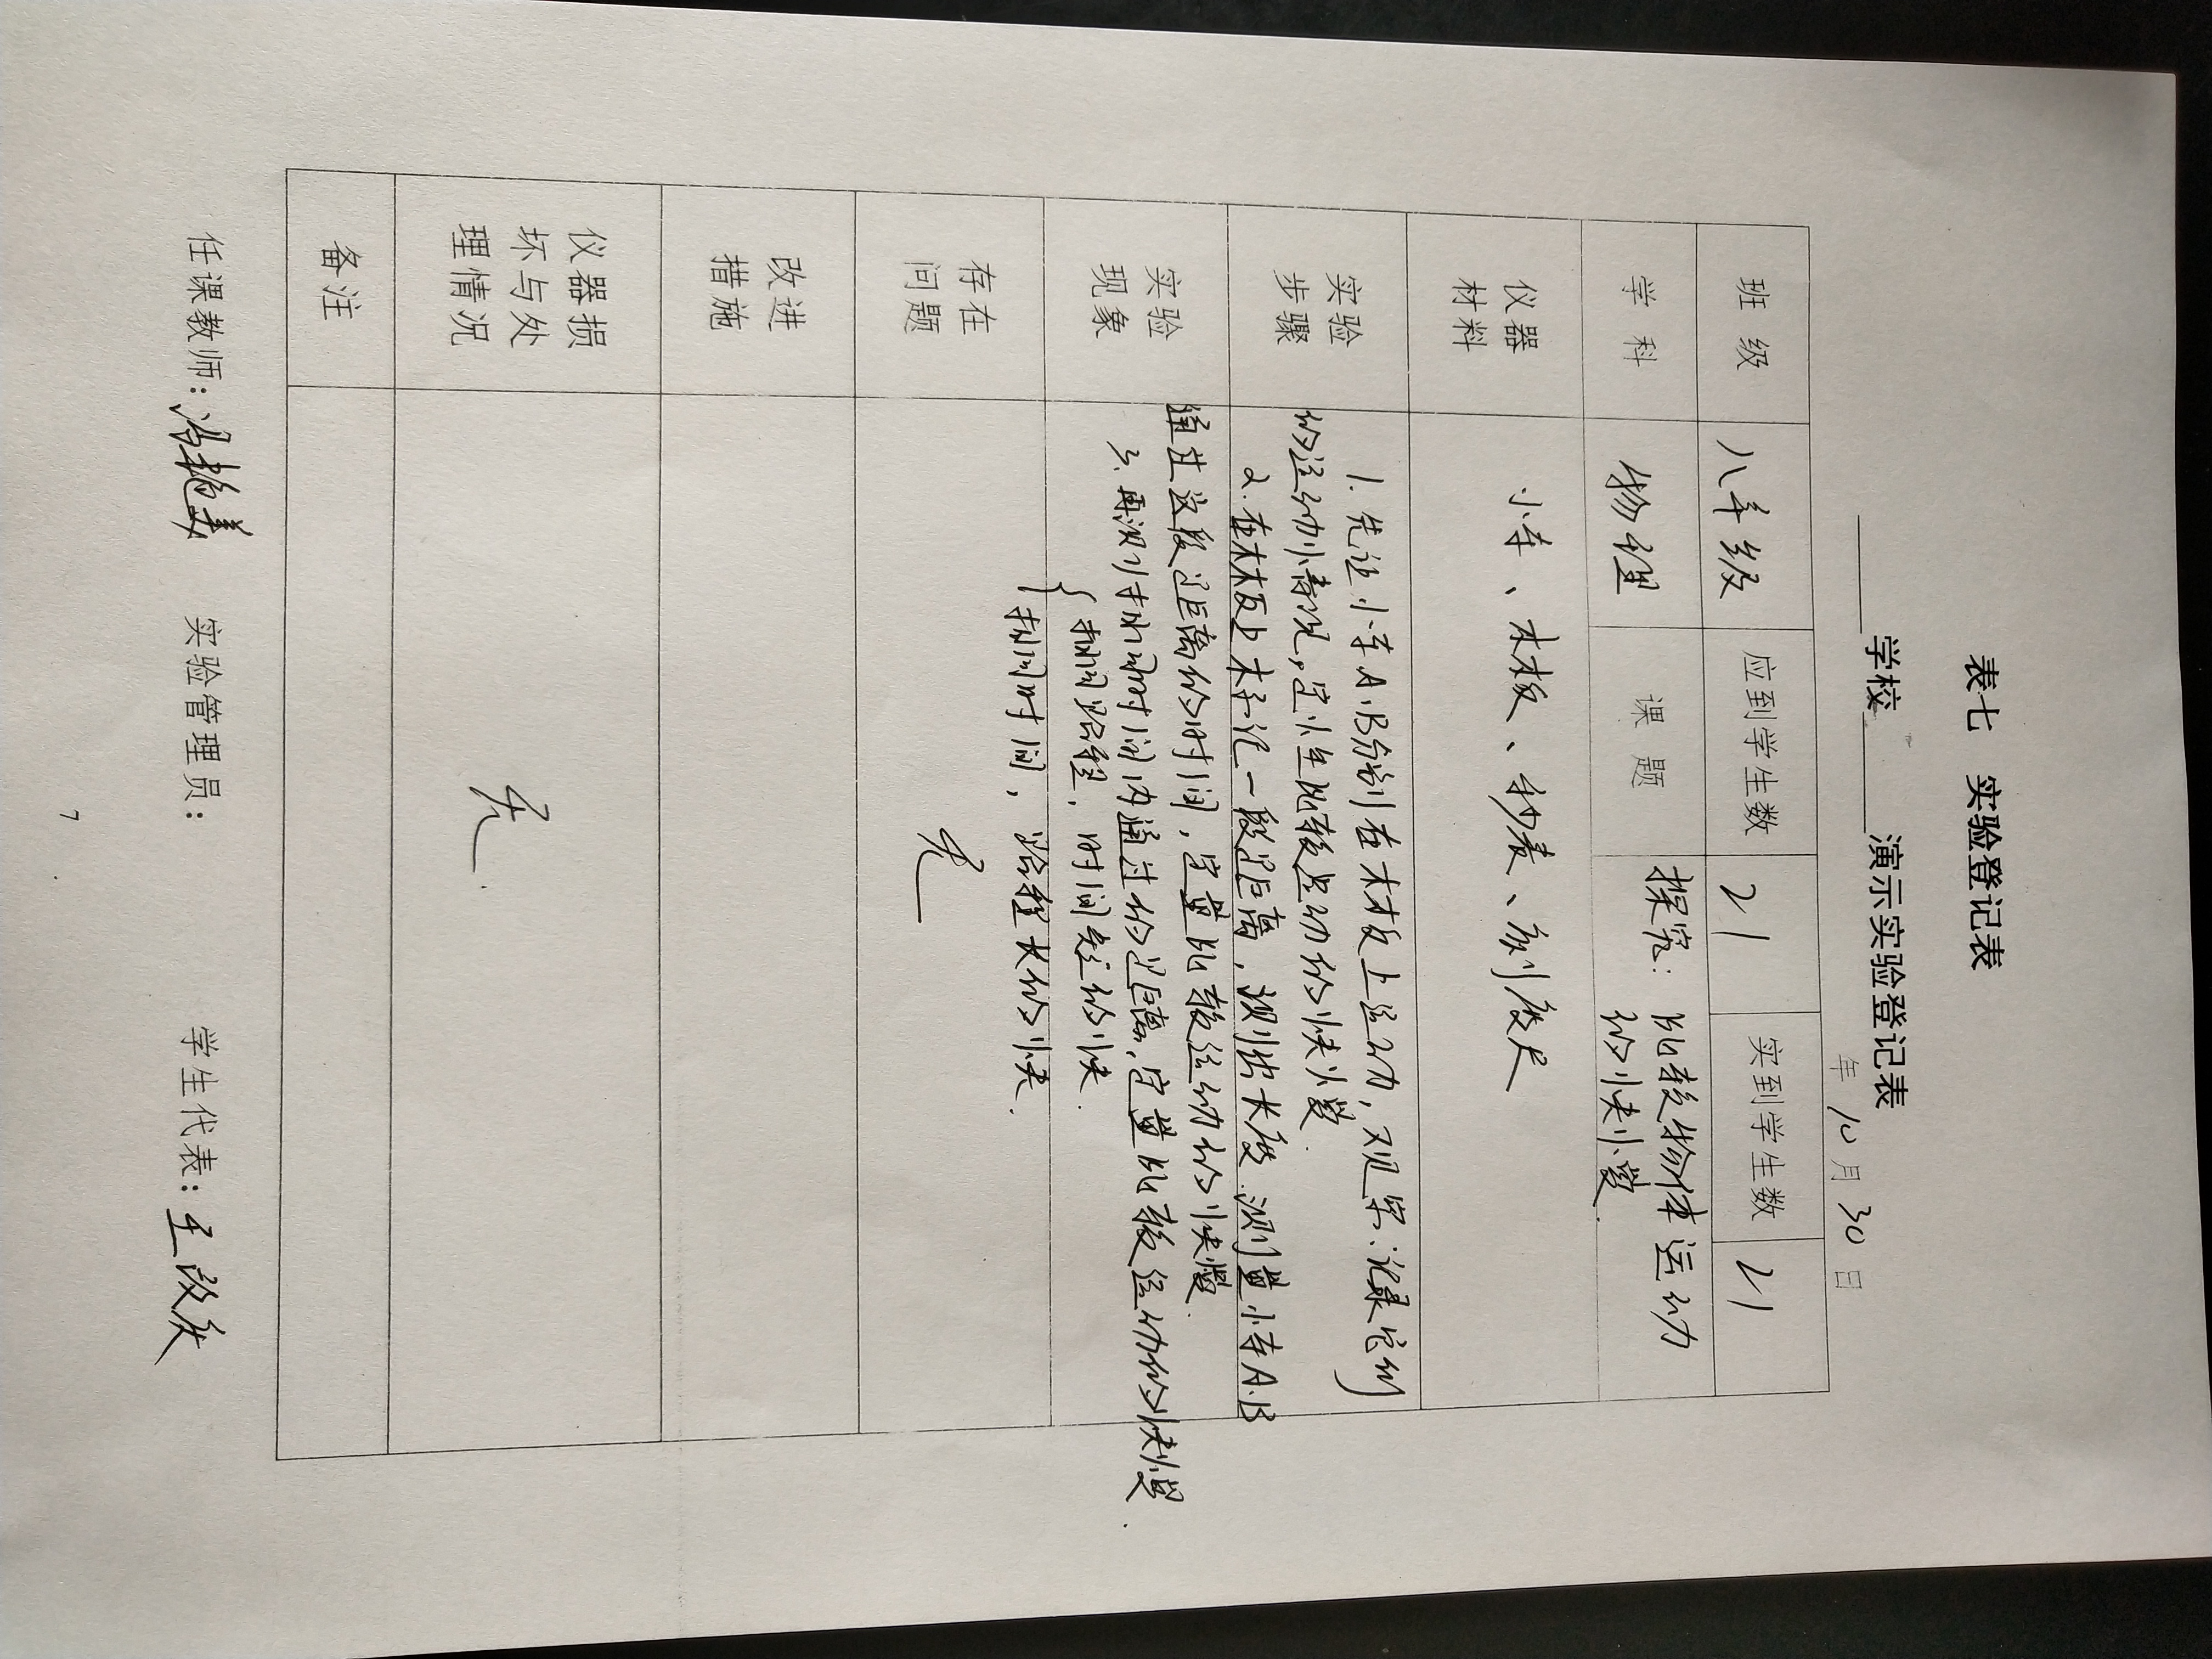 表七 实验登记表
学校 演示实验登记表
年 10月 30日
班 级 八年级 应到学生数 21 实到学生数 21
学 科 物理 课 题 探究: 比较物体运动
的快慢.
仪器
材料
小车、木板、秒表、刻度尺
实验
步骤
1. 先让小车A.B分别在木板上运动,观察、记录它们
的运动情况。定性比较运动的快慢.
2. 在木板上标记一段距离,测出长度.测量小车A.B
实验
现象
通过这段距离的时间,定量比较运动的快慢.
3. 再测引相同时间内通过的距离,定量比较运动的快慢.
{相同路程,时间短的快.
相同时间,路程长的快.
存在
问题
无
改进
措施
仪器损
坏与处
理情况
无.
备注
任课教师: 实验管理员: 学生代表: 王
7